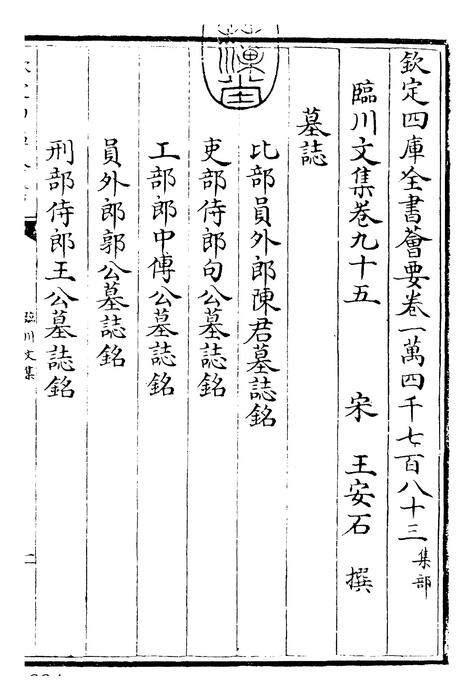 欽定四庫全書薈要卷一萬四千七百八十三 集部
臨川文集卷九十五 宋 王安石 撰
墓誌
比部員外郎陳君墓誌銘
吏部侍郎句公墓誌銘
工部郎中傅公墓誌銘
員外郎郭公墓誌銘
刑部侍郎王公墓誌銘
臨川文集